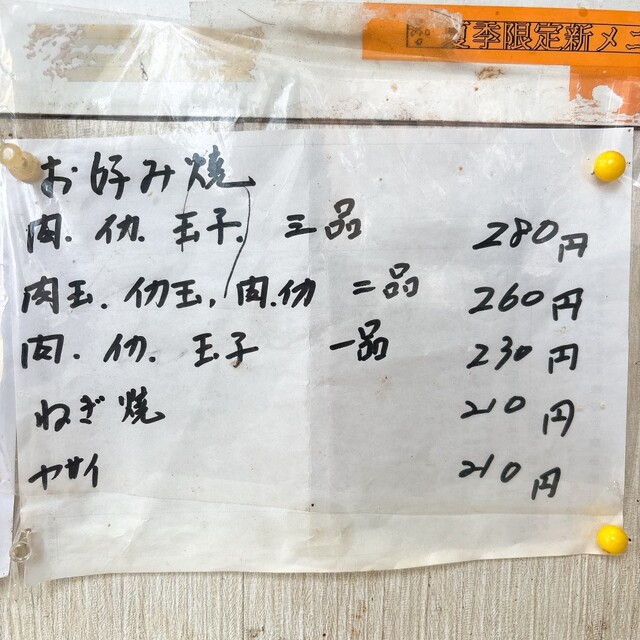 夏季限定新メニ
お好み焼
肉. イカ. 玉子. 三品 280円
肉玉. イカ玉, 肉.イカ 二品 260円
肉. イカ. 玉子 一品 230円
ねぎ焼 210円
ヤサイ 210円